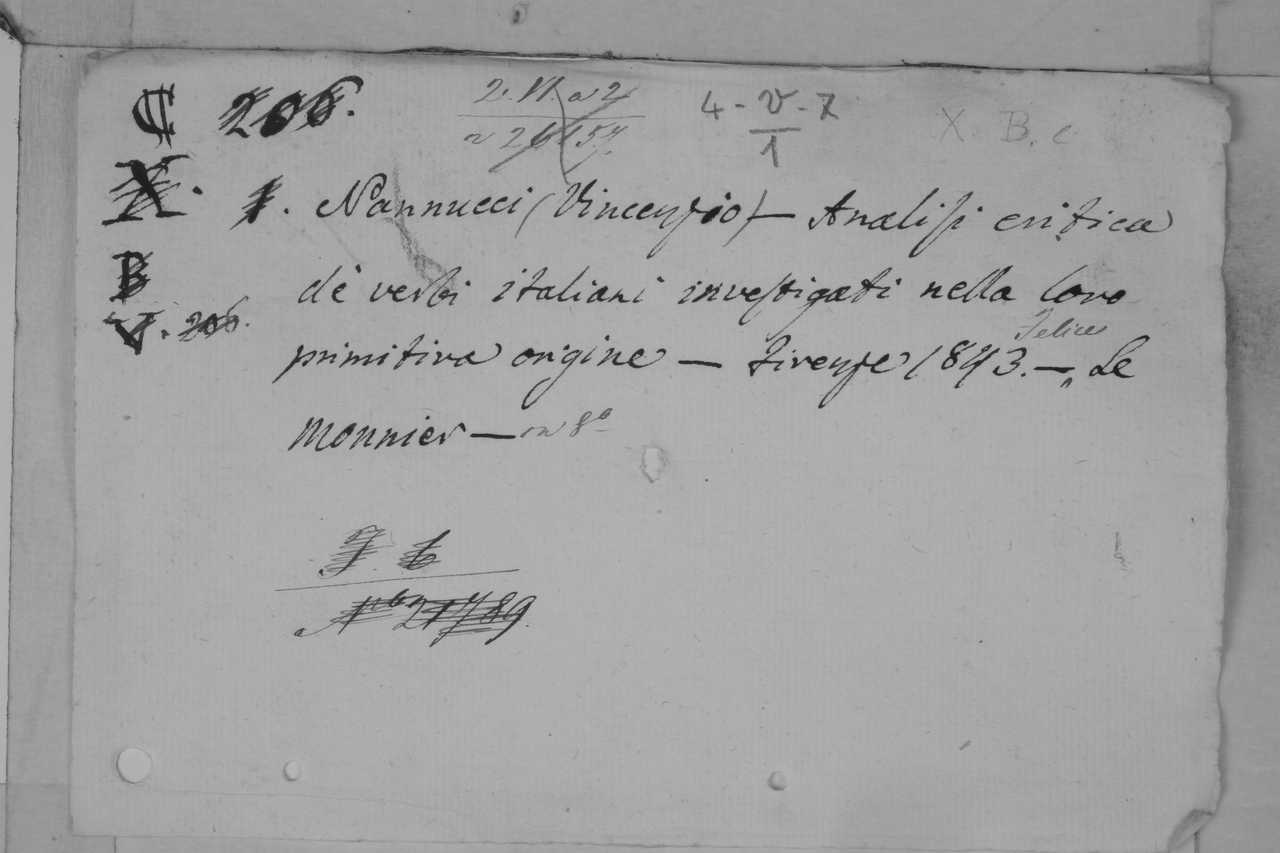 C 206. 2. VI. a 2 4 - V - 7 X B. c
n 26157. 1
X. 1. Nannucci (Vincenzio) — Analiſi critica
B de' verbi italiani inveſtigati nella loro
V. 206. primitiva origine — Firenze 1843. — Felice Le
Monnier — in 8°
J. 6
N° 21789.